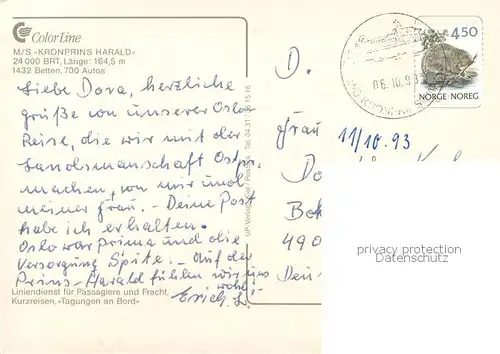 Color Line
M/S «KRONPRINS HARALD»
24 000 BRT, Länge: 164,5 m
1432 Betten, 700 Autos
Liebe Dora, herzliche
grüße von unserer Oslo
Reise, die wir mit der
Landsmanschaft Ostpr.
machen, von mir und
meiner Frau. - Deine Post
habe ich erhalten.
Oslo war prima und die
Versorgung Spitze. - Auf der
Prins-Harald fühlen wir uns
wohl!
Erich L.
Liniendienst für Passagiere und Fracht,
Kurzreisen, »Tagungen an Bord«
UP-Verlag
Tel. 04 31
16 16
06.10.93
450
NORGE · NOREG
D.
Frau
11/10.93
Do
Bok
490
privacy protection
Datenschutz